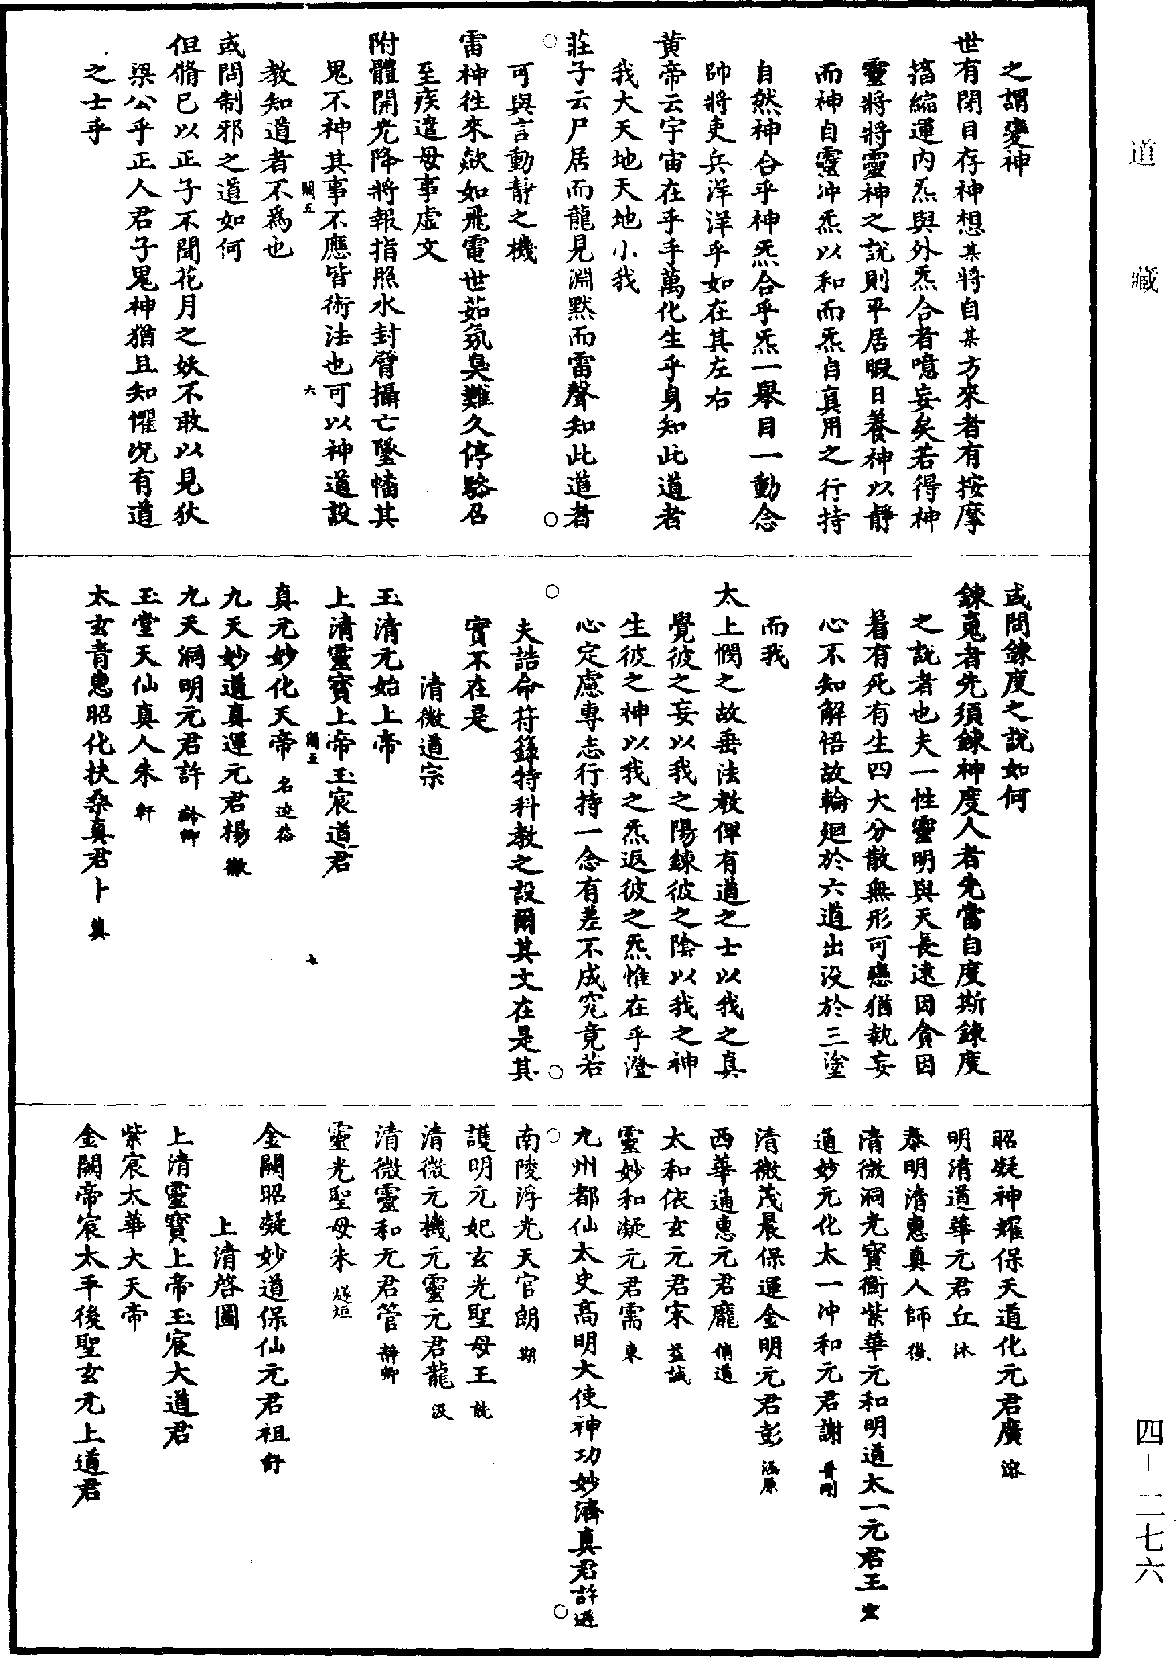 道藏
之謂變神
世有閉目存神想某將自某方來者有按摩
搐縮運內炁與外炁合者噫妄矣若得神
靈將將靈神之說則平居暇日養神以靜
而神自靈冲炁以和而炁自真用之行持
自然神合乎神炁合乎炁一舉目一動念
帥將吏兵洋洋乎如在其左右
黃帝云宇宙在乎手萬化生乎身知此道者
我大天地天地小我
莊子云尸居而龍見淵默而雷聲知此道者
可與言動靜之機
雷神往來歘如飛電世茹氛臭難久停駱召
至疾遣毋事虛文
附體開光降將報指照水封臂攝亡墜幡其
鬼不神其事不應皆術法也可以神道設
教知道者不為也
或問制邪之道如何
但脩已以正子不聞花月之妖不敢以見狄
梁公乎正人君子鬼神猶且知懼況有道
之士乎
或問鍊度之說如何
鍊䰟者先須鍊神度人者先當自度斯鍊度
之說者也夫一性靈明與天長遠因貪因
着有死有生四大分散無形可戀猶執妄
心不知解悟故輪廻於六道出沒於三塗
而我
太上憫之故垂法教俾有道之士以我之真
覺彼之妄以我之陽鍊彼之陰以我之神
生彼之神以我之炁返彼之炁惟在乎澄
心定慮專志行持一念有差不成究竟若
夫誥命符籙特科教之設爾其文在是其
實不在是
清微道宗
玉清元始上帝
上清靈寶上帝玉宸道君
真元妙化天帝 名
九天妙道真運元君楊 徽
九天洞明元君許 齡卿
玉堂天仙真人朱 軒
太玄青惠昭化扶桑真君卜 冀
昭凝神耀保天道化元君廣 溶
明清道華元君丘 沐
泰明清惠真人師
清微洞光寶衡紫華元和明道太一元君王
通妙元化太一冲和元君謝 晉剛
清微茂晨保運金明元君彭 涵原
西華通惠元君龐 道
太和依玄元君宋 益誠
靈妙和凝元君需 東
九州都仙太史高明大使神功妙濟真君許遜
南陵浮光天官朗 期
護明元妃玄光聖母王 說
清微元機元靈元君龍 汲
清微靈和元君管 靜卿
靈光聖母朱 垣
金闕昭凝妙道保仙元君祖 舒
上清啓圖
上清靈寶上帝玉宸大道君
紫宸太華大天帝
金闕帝宸太平後聖玄元上道君
四-二七六